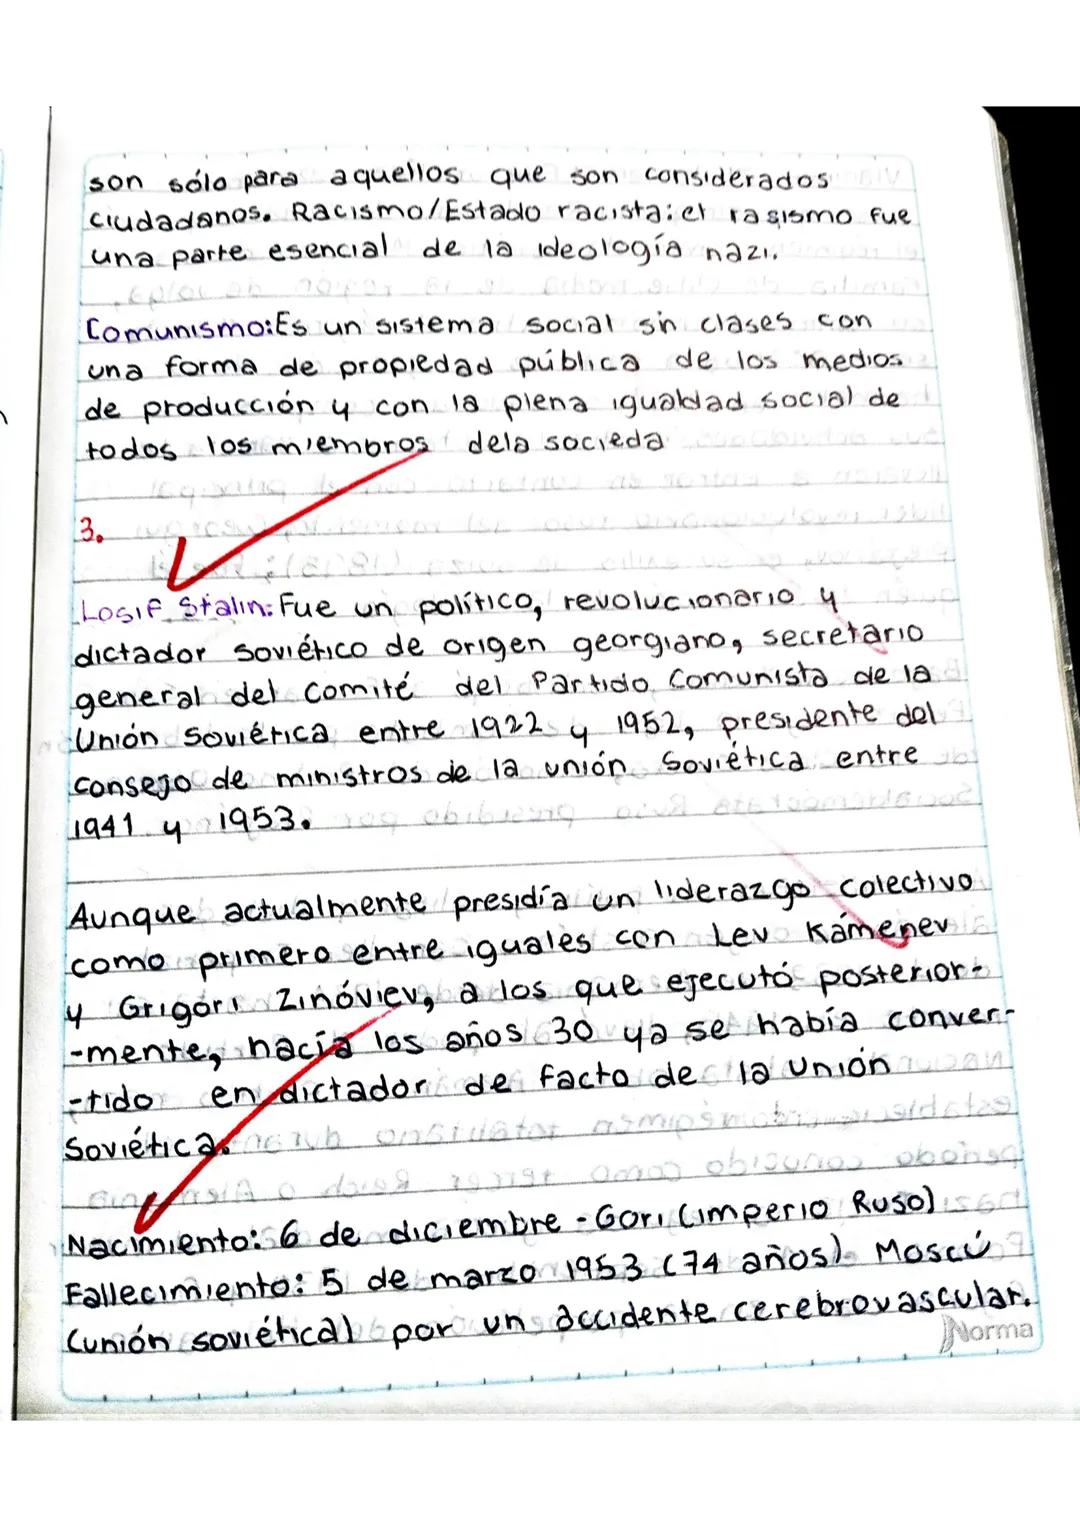 son sólo para aquellos que son considerados
ciudadanos. Racismo/Estado racista: el rasismo fue
una parte esencial de la ideología nazi.
Comunismo: Es un sistema social sin clases con
una forma de propiedad pública de los medios
de producción y con la plena igualdad social de
todos los miembros dela socieda
3.
Losif Stalin: Fue un político, revolucionario y
dictador soviético de origen georgiano, secretario
general del comité del Partido Comunista de la
Unión Soviética entre 1922 y 1952, presidente del
consejo de ministros de la unión Soviética entre
1941 y 1953.
Aunque actualmente presidía un liderazgo colectivo
como primero entre iguales con Lev Kámenev
y Grigóri Zinóviev, a los que ejecutó posterior-
-mente, hacía los años 30 ya se había conver-
-tido en dictador de facto de la Unión
Soviética.
Nacimiento: 6 de diciembre - Gori (imperio Ruso)
Fallecimiento: 5 de marzo 1953 (74 años) Moscú
(unión soviética) por un accidente cerebrovascular.
Norma